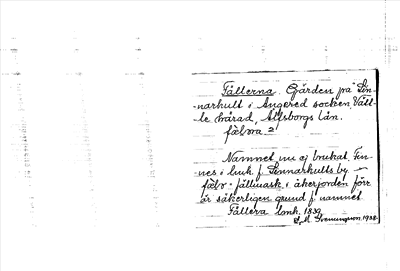 Fällerna. Gärden på "Len-
narhult i Angered socken, Vätt-
le härad, Älfsborgs län.
Namnet nu ej brukat. Fin-
nes i link f. Lennarhults by. –
fälv = fällmask i åkerjorden förr
är säkerligen grund f. namnet
Fällera lank. 1839.
1928